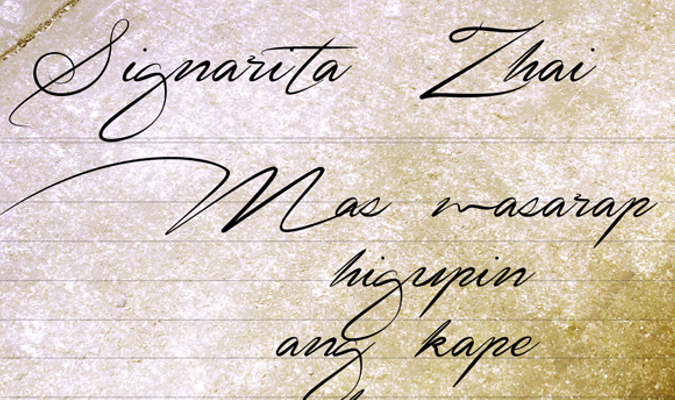 Signarita Zhai
Mas masarap
higupin
ang kape